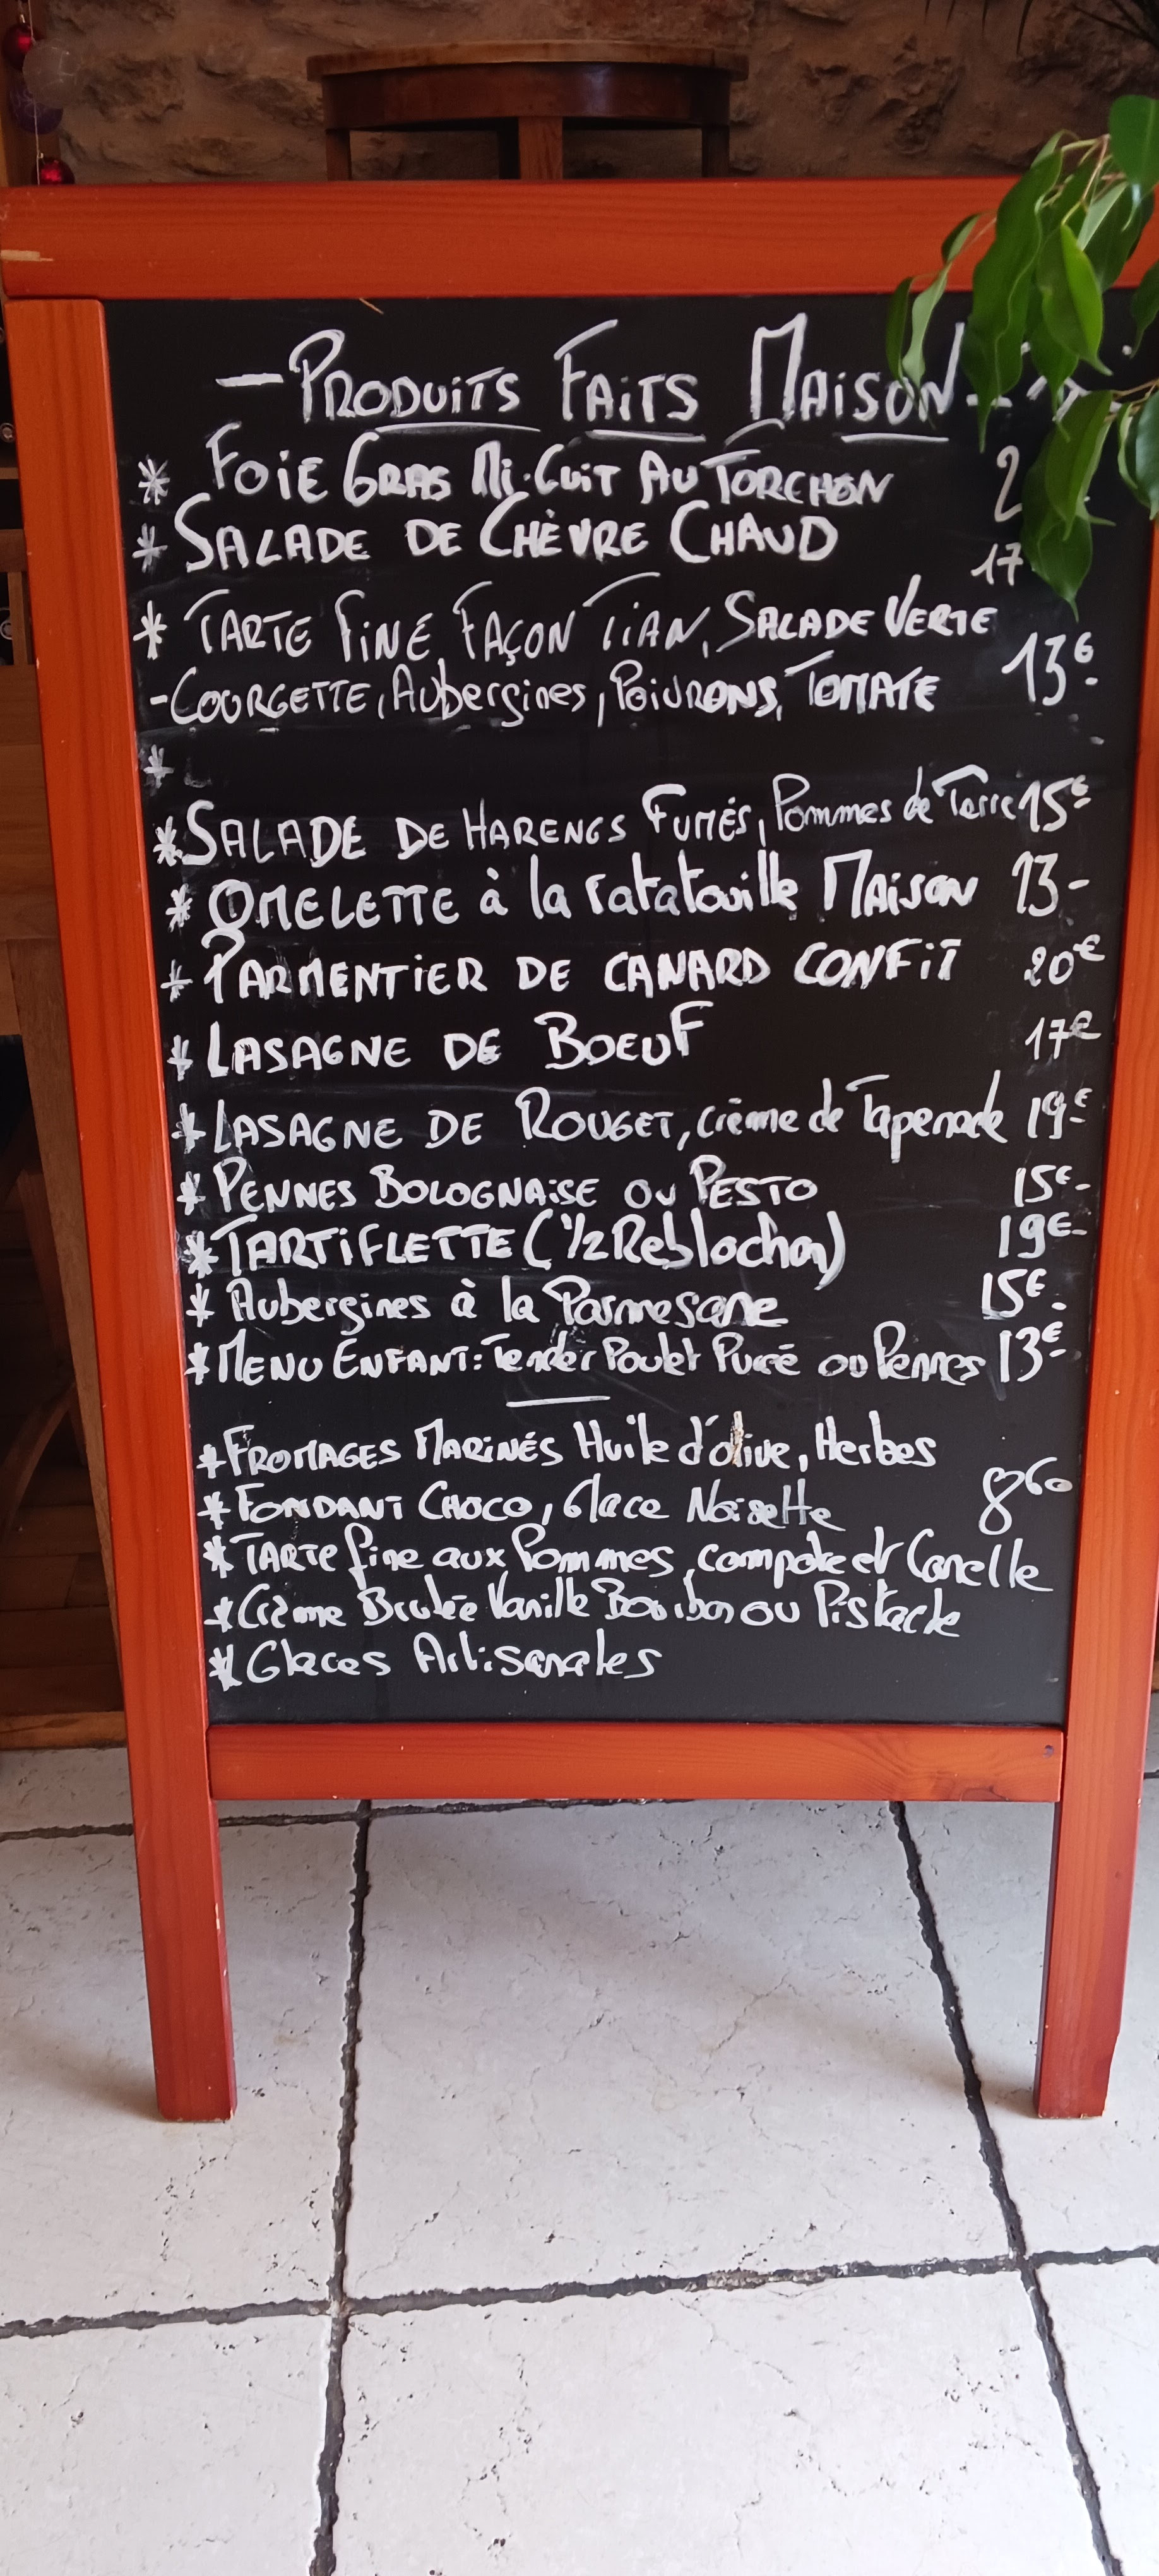 - PRODUITS FAITS MAISON -
* FOIE GRAS MI-CUIT AU TORCHON 2
* SALADE DE CHÈVRE CHAUD
17
* TARTE FINE FAÇON TIAN, SALADE VERTE
- COURGETTE, Aubergines, POIVRONS, TOMATE 13€-
*
* SALADE DE HARENGS FUMÉS, Pommes de Terre 15€-
* OMELETTE à la ratatouille MAISON 13-
* PARMENTIER DE CANARD CONFIT 20€
* LASAGNE DE BOEUF 17€
* LASAGNE DE ROUGET, crème de Tapenade 19€-
* PENNES BOLOGNAISE OU PESTO 15€-
* TARTIFLETTE (1/2 Reblochon) 19€-
* Aubergines à la Parmesane 15€-
* MENU ENFANT: Tender Poulet Purée ou Pennes 13€-
* FROMAGES MARINÉS Huile d'olive, Herbes
* FONDANT CHOCO, Glace Noisette 8€
* TARTE fine aux Pommes, compote et Canelle
* Crème Brulée Vanille Bourbon ou Pistache
* Glaces Artisanales